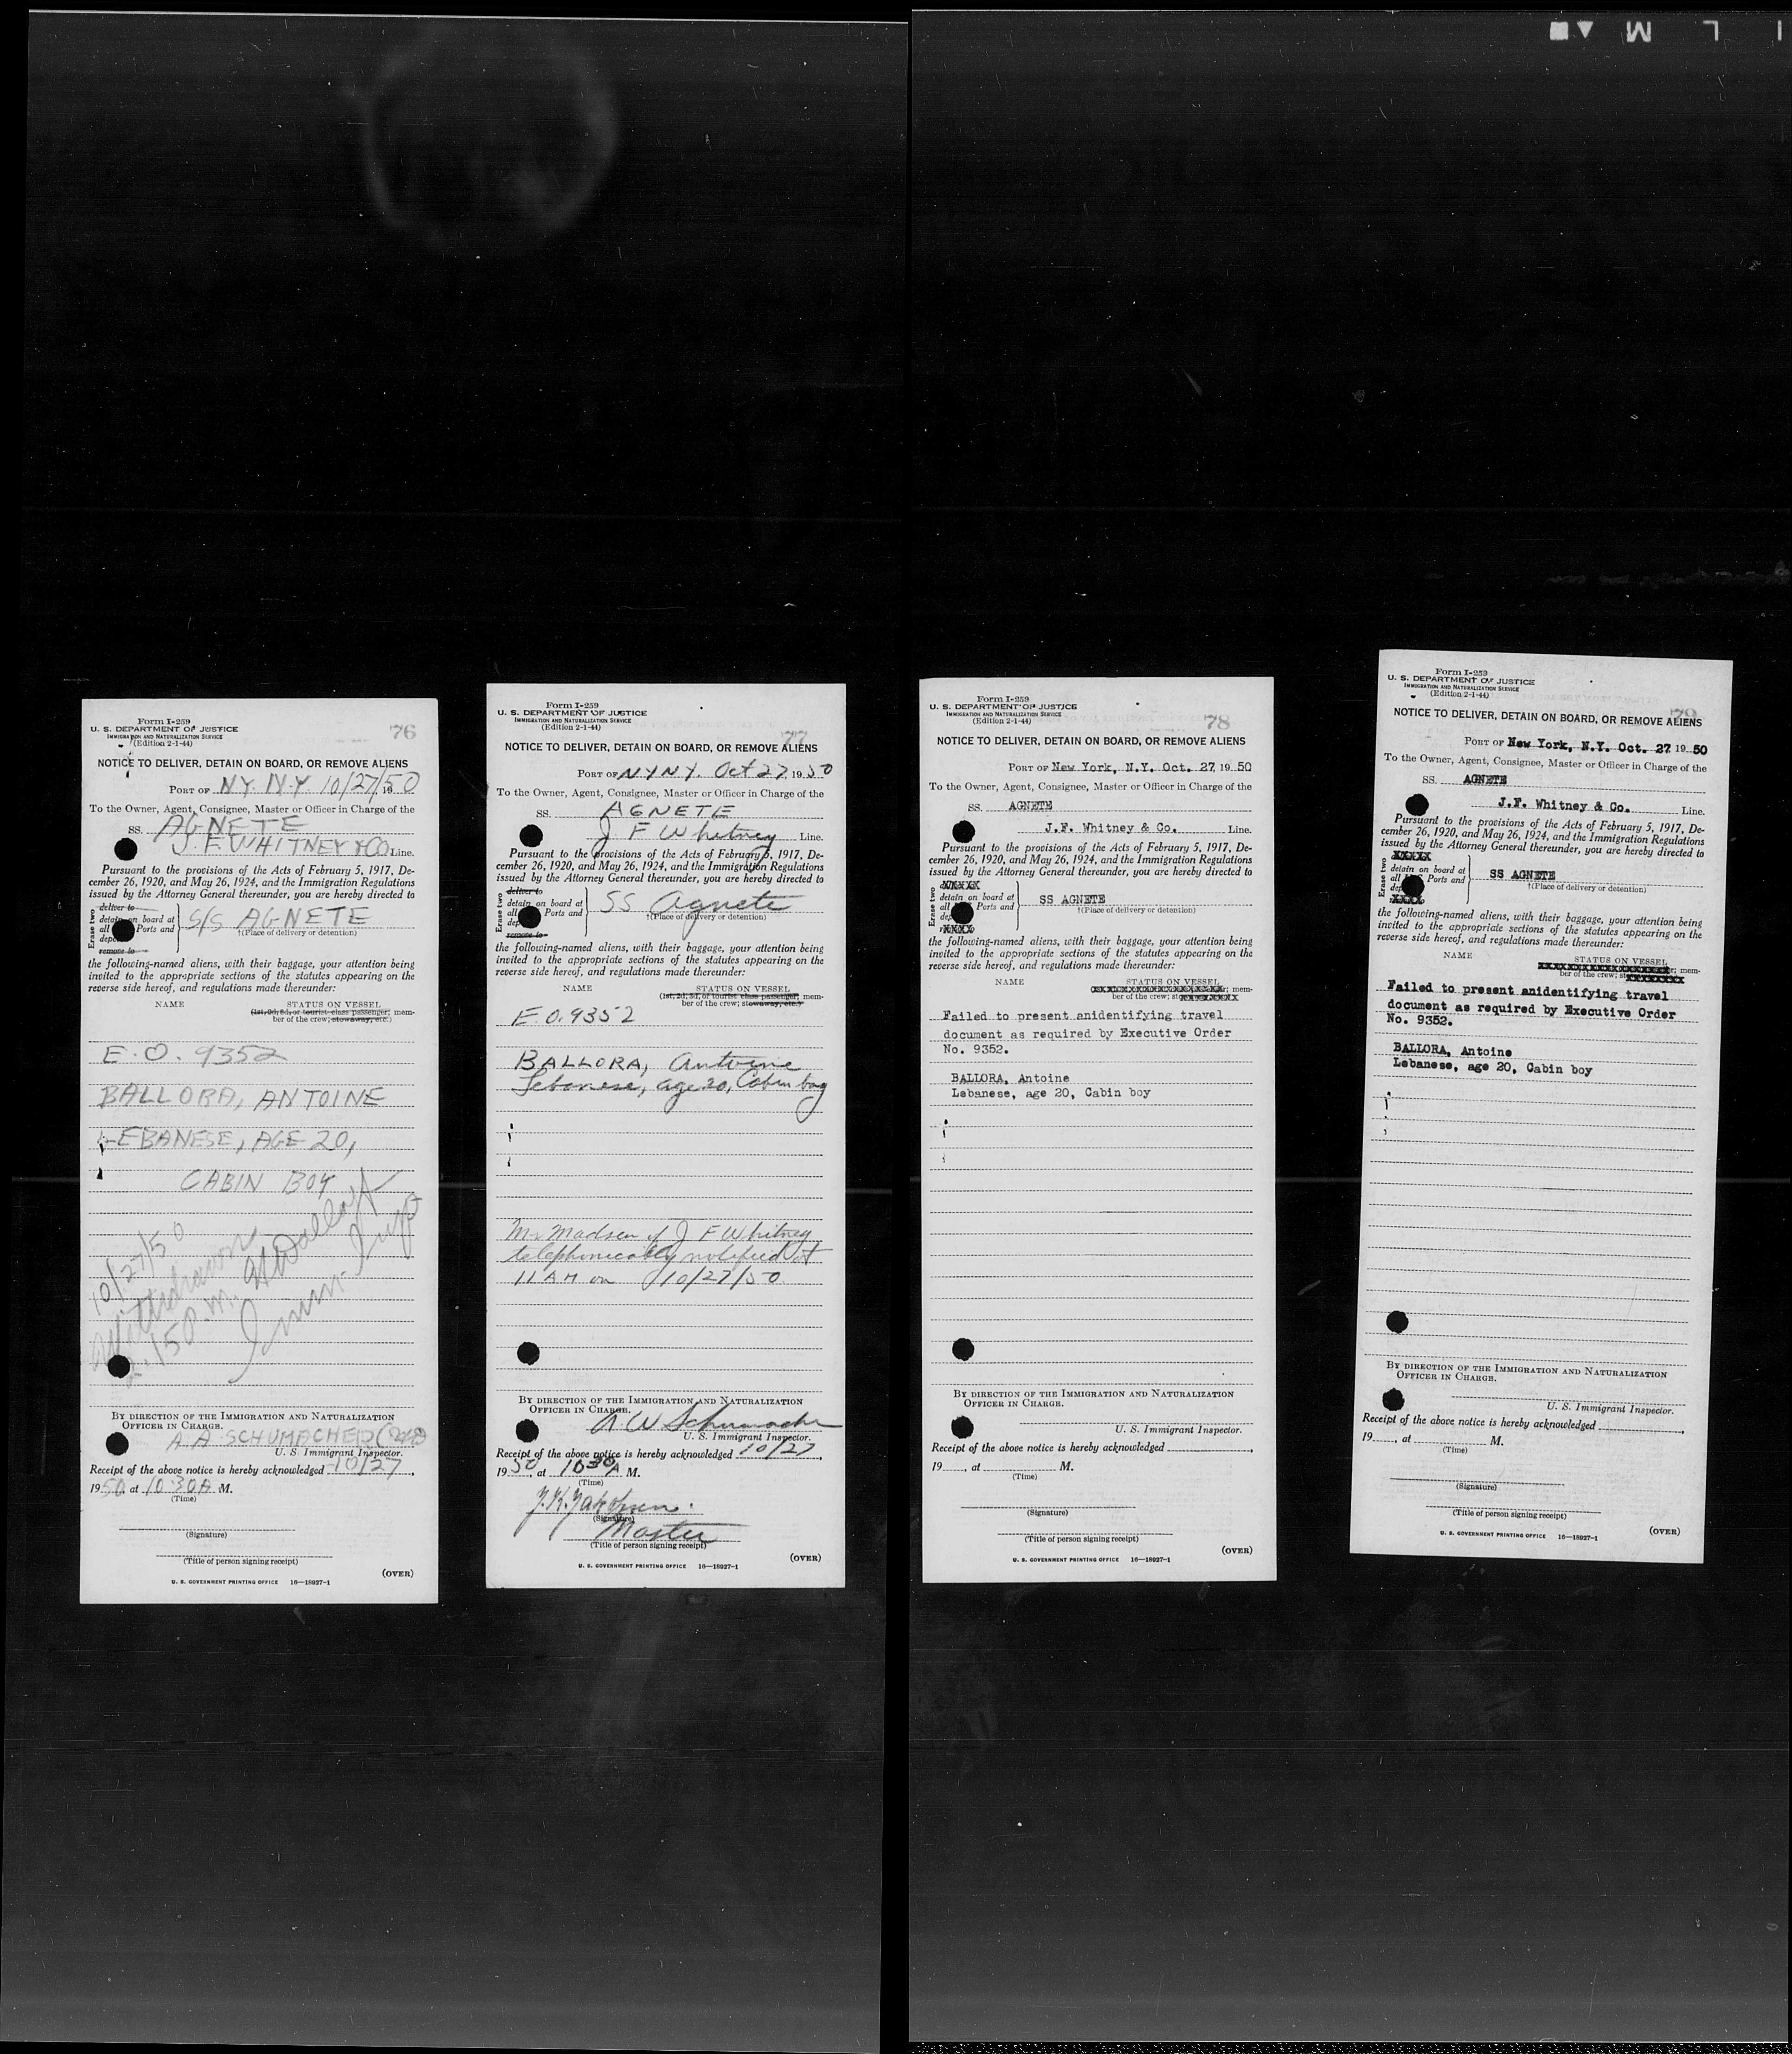 I L M
76
Form I-259
U. S. DEPARTMENT OF JUSTICE
IMMIGRATION AND NATURALIZATION SERVICE
(Edition 2-1-44)
NOTICE TO DELIVER, DETAIN ON BOARD, OR REMOVE ALIENS
PORT OF N.Y. N.Y 10/27/50 19
To the Owner, Agent, Consignee, Master or Officer in Charge of the
SS. AGNETE
J. F. WHITNEY & CO Line.
Pursuant to the provisions of the Acts of February 5, 1917, De-
cember 26, 1920, and May 26, 1924, and the Immigration Regulations
issued by the Attorney General thereunder, you are hereby directed to
Erase two
deliver to
detain on board at
all Ports and
S/S AGNETE
(Place of delivery or detention)
remove to
the following-named aliens, with their baggage, your attention being
invited to the appropriate sections of the statutes appearing on the
reverse side hereof, and regulations made thereunder:
NAME STATUS ON VESSEL
(1st, 2d, 3d, or tourist class passenger; mem-
ber of the crew; stowaway, etc.)
E.O. 9352
BALLORA, ANTOINE
LEBANESE, AGE 20,
CABIN BOY
10/27/50
Withdrawn
Imm. Insp
BY DIRECTION OF THE IMMIGRATION AND NATURALIZATION
OFFICER IN CHARGE.
A A SCHUMACHER
U. S. Immigrant Inspector.
Receipt of the above notice is hereby acknowledged 10/27,
1950, at 10 30 A M.
(Time)
(Signature)
(Title of person signing receipt)
(OVER)
U. S. GOVERNMENT PRINTING OFFICE 16—18927-1
Form I-259
U. S. DEPARTMENT OF JUSTICE
IMMIGRATION AND NATURALIZATION SERVICE
(Edition 2-1-44)
77
NOTICE TO DELIVER, DETAIN ON BOARD, OR REMOVE ALIENS
PORT OF NYNY. Oct 27, 1950
To the Owner, Agent, Consignee, Master or Officer in Charge of the
SS. AGNETE
J F Whitney Line.
Pursuant to the provisions of the Acts of February 5, 1917, De-
cember 26, 1920, and May 26, 1924, and the Immigration Regulations
issued by the Attorney General thereunder, you are hereby directed to
Erase two
deliver to
detain on board at
all Ports and
SS Agnete
(Place of delivery or detention)
remove to
the following-named aliens, with their baggage, your attention being
invited to the appropriate sections of the statutes appearing on the
reverse side hereof, and regulations made thereunder:
NAME STATUS ON VESSEL
(1st, 2d, 3d, or tourist class passenger; mem-
ber of the crew; stowaway, etc.)
E.O. 9352
BALLORA, Antoine
Lebanese, age 20, Cabin boy
Mr Madsen of J F Whitney
telephonically notified at
11 AM on 10/27/50
BY DIRECTION OF THE IMMIGRATION AND NATURALIZATION
OFFICER IN CHARGE.
A. W Schumacher
U. S. Immigrant Inspector.
Receipt of the above notice is hereby acknowledged 10/27,
1950, at 10 30 A M.
(Time)
(Signature)
Master
(Title of person signing receipt)
(OVER)
U. S. GOVERNMENT PRINTING OFFICE 16—18927-1
Form I-259
U. S. DEPARTMENT OF JUSTICE
IMMIGRATION AND NATURALIZATION SERVICE
(Edition 2-1-44)
78
NOTICE TO DELIVER, DETAIN ON BOARD, OR REMOVE ALIENS
PORT OF New York, N.Y. Oct. 27, 1950
To the Owner, Agent, Consignee, Master or Officer in Charge of the
SS. AGNETE
J.F. Whitney & Co. Line.
Pursuant to the provisions of the Acts of February 5, 1917, De-
cember 26, 1920, and May 26, 1924, and the Immigration Regulations
issued by the Attorney General thereunder, you are hereby directed to
Erase two
detain on board at
all Ports and
SS AGNETE
(Place of delivery or detention)
the following-named aliens, with their baggage, your attention being
invited to the appropriate sections of the statutes appearing on the
reverse side hereof, and regulations made thereunder:
NAME STATUS ON VESSEL
mem-
ber of the crew;
Failed to present anidentifying travel
document as required by Executive Order
No. 9352.
BALLORA, Antoine
Lebanese, age 20, Cabin boy
BY DIRECTION OF THE IMMIGRATION AND NATURALIZATION
OFFICER IN CHARGE.
U. S. Immigrant Inspector.
Receipt of the above notice is hereby acknowledged
19, at M.
(Time)
(Signature)
(Title of person signing receipt)
(OVER)
U. S. GOVERNMENT PRINTING OFFICE 16—18927-1
Form I-259
U. S. DEPARTMENT OF JUSTICE
IMMIGRATION AND NATURALIZATION SERVICE
(Edition 2-1-44)
79
NOTICE TO DELIVER, DETAIN ON BOARD, OR REMOVE ALIENS
PORT OF New York, N.Y. Oct. 27, 1950
To the Owner, Agent, Consignee, Master or Officer in Charge of the
SS. AGNETE
J.F. Whitney & Co. Line.
Pursuant to the provisions of the Acts of February 5, 1917, De-
cember 26, 1920, and May 26, 1924, and the Immigration Regulations
issued by the Attorney General thereunder, you are hereby directed to
Erase two
detain on board at
all Ports and
SS AGNETE
(Place of delivery or detention)
the following-named aliens, with their baggage, your attention being
invited to the appropriate sections of the statutes appearing on the
reverse side hereof, and regulations made thereunder:
NAME STATUS ON VESSEL
mem-
ber of the crew;
Failed to present anidentifying travel
document as required by Executive Order
No. 9352.
BALLORA, Antoine
Lebanese, age 20, Cabin boy
BY DIRECTION OF THE IMMIGRATION AND NATURALIZATION
OFFICER IN CHARGE.
U. S. Immigrant Inspector.
Receipt of the above notice is hereby acknowledged
19, at M.
(Time)
(Signature)
(Title of person signing receipt)
(OVER)
U. S. GOVERNMENT PRINTING OFFICE 16—18927-1